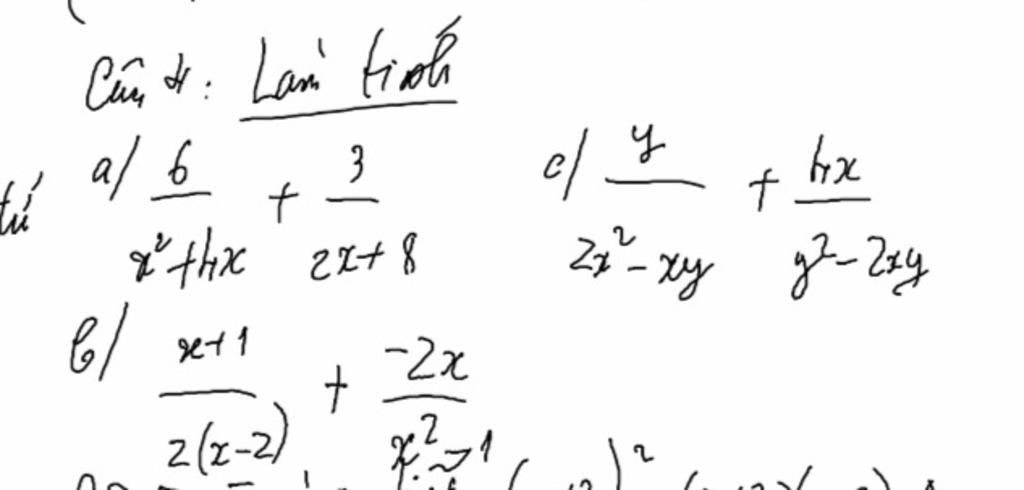 Câu 4: Làm tính
a/ 6/(x²+4x) + 3/(2x+8)
c/ y/(2x²-xy) + 4x/(y²-2xy)
b/ (x+1)/(2(x-2)) + (-2x)/(x²-1)